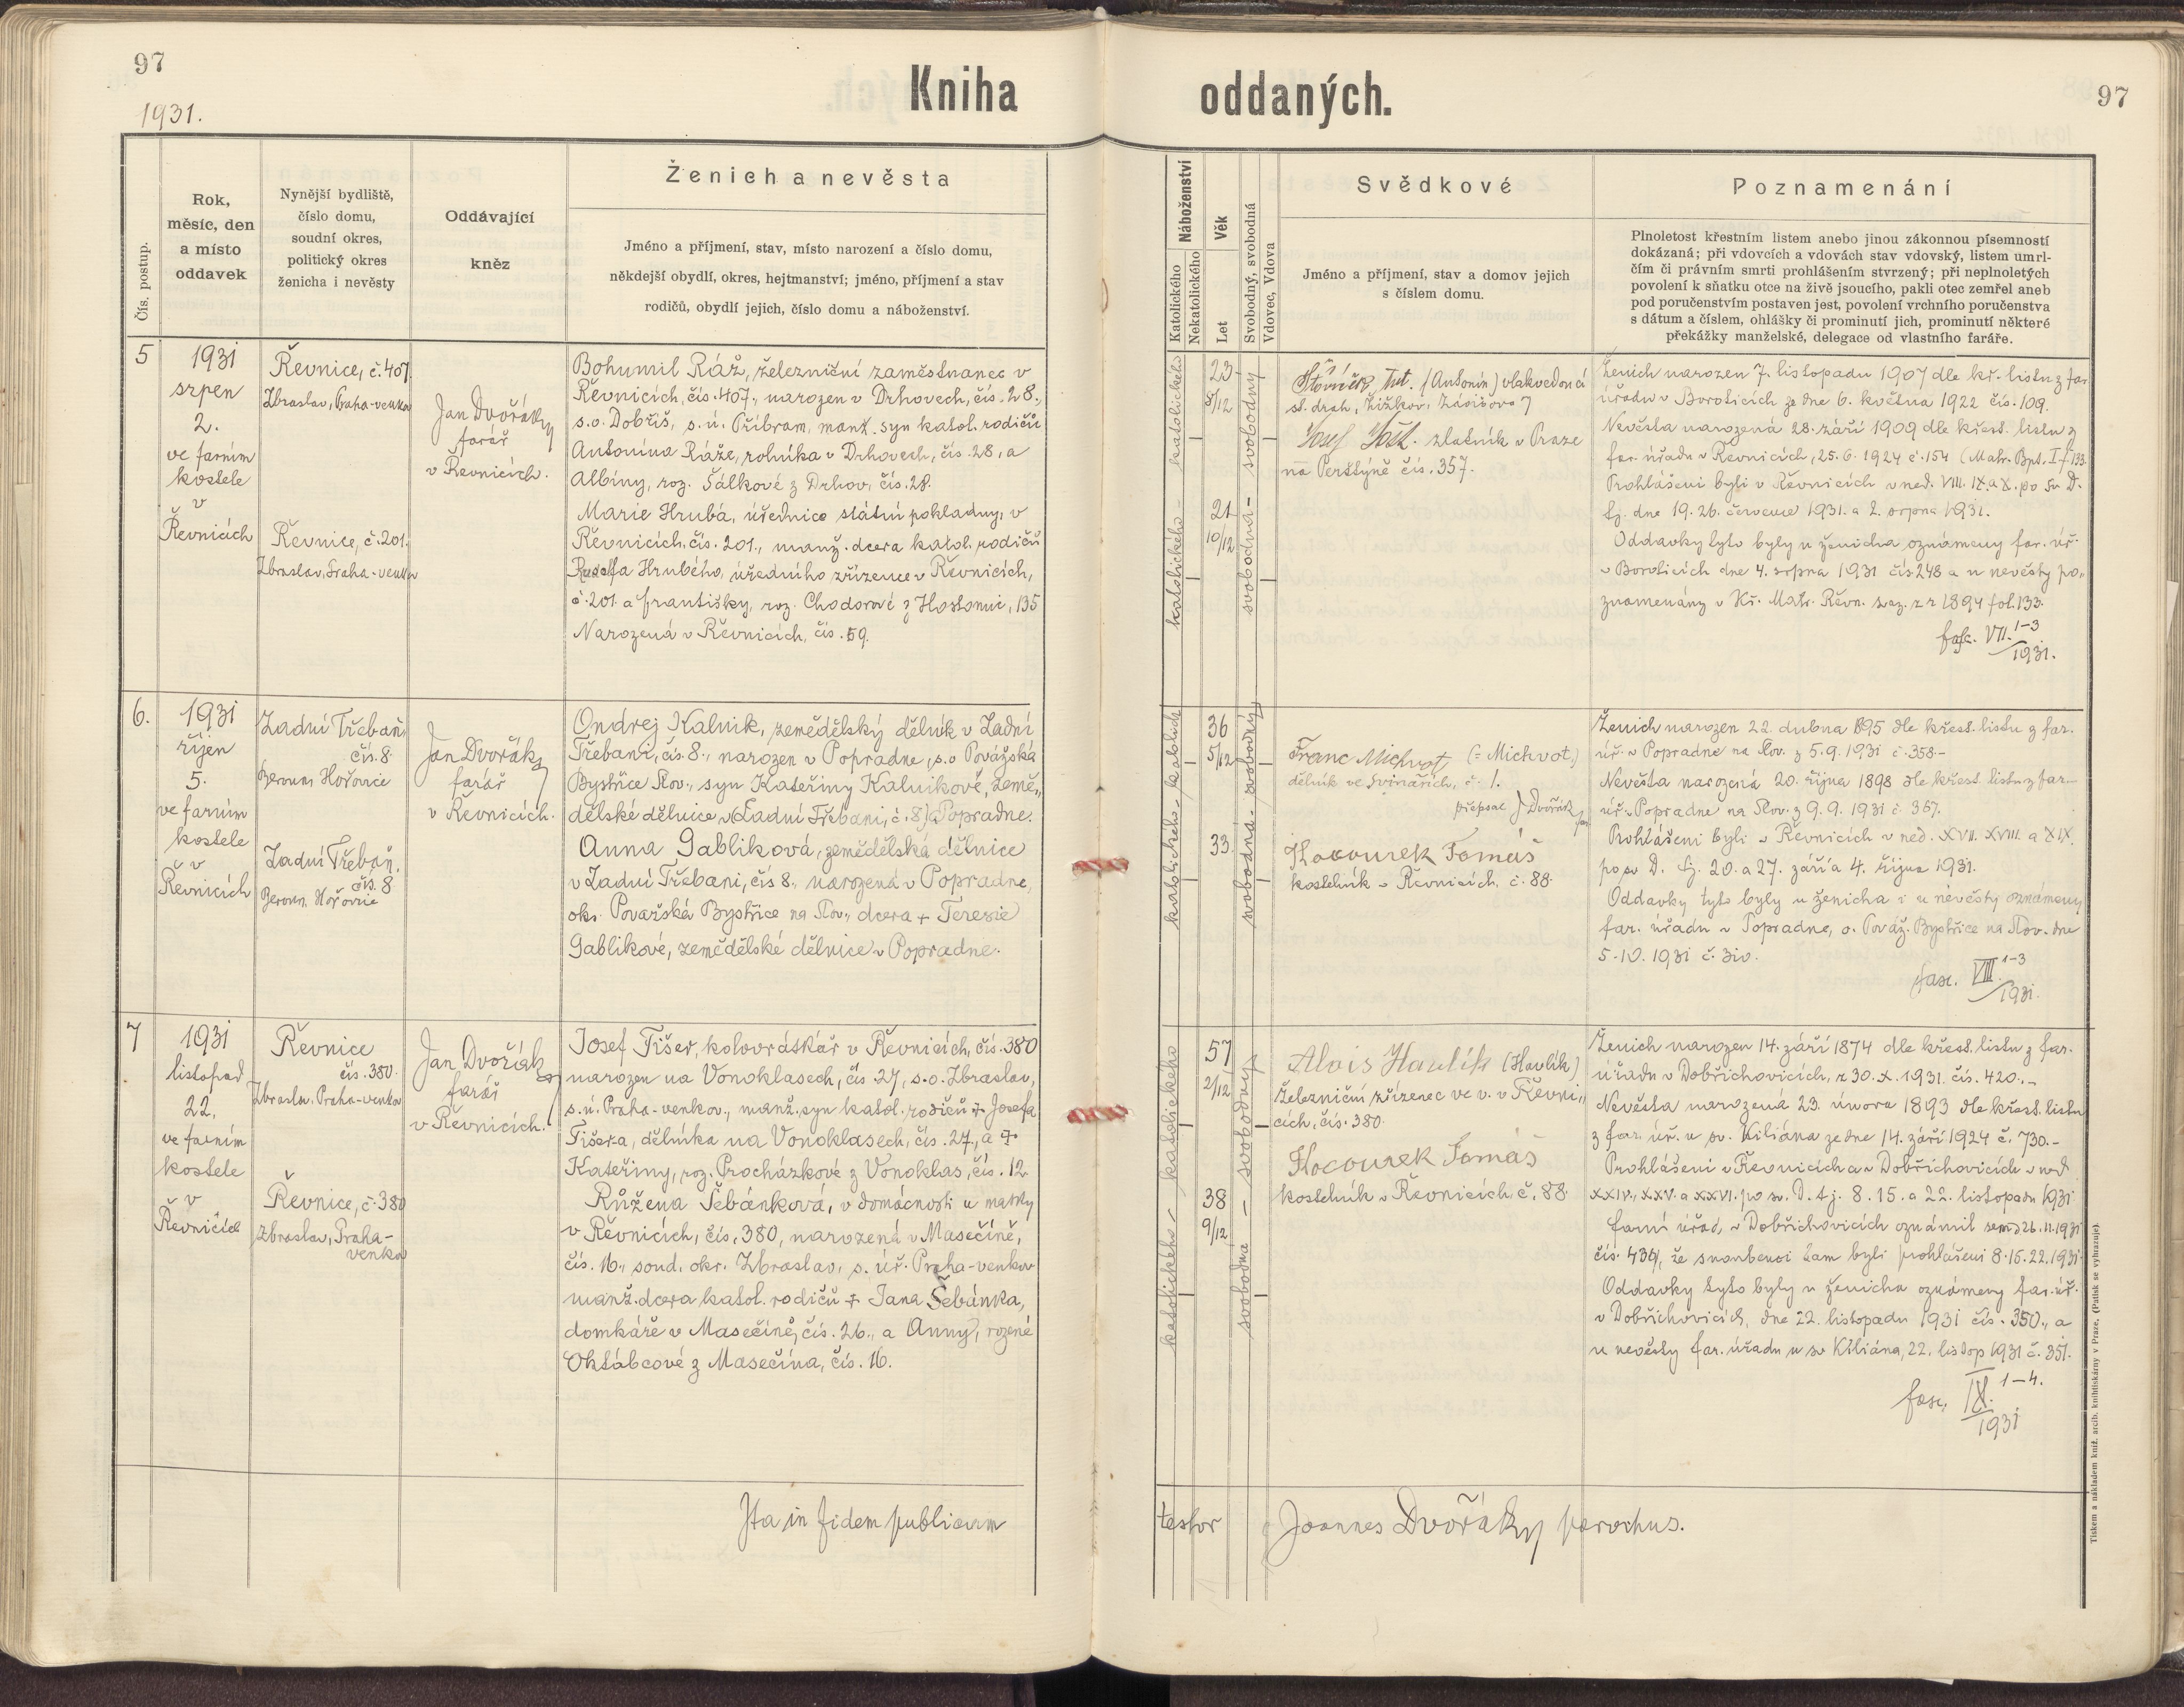 97
1931.
Kniha oddaných.
97
Čís. postup.
Rok,
měsíc, den
a místo
oddavek
Nynější bydliště,
číslo domu,
soudní okres,
politický okres
ženicha i nevěsty
Oddávající
kněz
Ženich a nevěsta
Jméno a příjmení, stav, místo narození a číslo domu,
někdejší obydlí, okres, hejtmanství; jméno, příjmení a stav
rodičů, obydlí jejich, číslo domu a náboženství.
Náboženství
Katolického
Nekatolického
Věk
Let
Svobodný, svobodná
Vdovec, Vdova
Svědkové
Jméno a příjmení, stav a domov jejich
s číslem domu.
Poznamenání
Plnoletost křestním listem anebo jinou zákonnou písemností
dokázaná; při vdovcích a vdovách stav vdovský, listem umrl-
čím či právním smrti prohlášením stvrzený; při neplnoletých
povolení k sňatku otce na živě jsoucího, pakli otec zemřel aneb
pod poručenstvím postaven jest, povolení vrchního poručenstva
s dátum a číslem, ohlášky či prominutí jich, prominutí některé
překážky manželské, delegace od vlastního faráře.
5
1931
srpen
2.
ve farním
kostele
v
Řevnicích
Řevnice, č. 407.
Zbraslav, Praha-venkov
Řevnice, č. 201.
Zbraslav, Praha-venkov
Jan Dvořák
farář
v Řevnicích.
Bohumil Ráž, železniční zaměstnanec v
Řevnicích, čís. 407., narozen v Drhovech, čís. 28.,
s.o. Dobříš, s.ú. Příbram, manž. syn katol. rodičů
Antonína Ráže, rolníka v Drhovech, čís. 28, a
Albíny, roz. Šálkové z Drhov, čís. 28.
Marie Hrubá, úřednice státní pokladny, v
Řevnicích, čís. 201., manž. dcera katol. rodičů
Rudolfa Hrubého, úředního zřízence v Řevnicích,
č. 201. a Františky, roz. Chodorové z Hostomic, 135
Narozená v Řevnicích, čís. 59.
katolického - katolického
23
8/12
21
10/12
svobodná - svobodný
Ant. (Antonín) vlakvedoucí
st. drah, Žižkov, Závišova 7
Josef Jošt. zlatník v Praze
na Perštýně čís. 357.
Ženich narozen 7. listopadu 1907 dle kř. listu z far.
úřadu v Boroticích ze dne 6. května 1922 čís. 109.
Nevěsta narozená 28. září 1909 dle křest. listu z
far. úřadu v Řevnicích, 25. 6. 1924 č. 154 (Matr. Bpt. I f. 133.
Prohlášeni byli v Řevnicích v ned. VIII. IX. a X. po sv. D.
tj. dne 19. 26. července 1931. a 2. srpna 1931.
Oddavky tyto byly u ženicha oznámeny far. úř.
v Boroticích dne 4. srpna 1931 čís. 248 a u nevěsty po„
znamenány v Kř. Matr. Řevn. svaz. z r 1894 fol. 133.
fasc. VII. 1-3
1931.
6.
1931
říjen
5.
ve farním
kostele
v
Řevnicích
Zadní Třebaň,
čís. 8
Beroun, Hořovice
Zadní Třebaň,
čís. 8
Beroun. Hořovice
Jan Dvořák
farář
v Řevnicích.
Ondrej Kalnik, zemědělský dělník v Zadní
Třebani, čís. 8., narozen v Popradne, s.o Považská
Bystřice Slov., syn Kateřiny Kalnikové, země„
dělské dělnice v (Zadní Třebani, č. 8) Popradne.
Anna Gabliková, zemědělská dělnice
v Zadní Třebani, čís 8., narozená v Popradne,
okr. Považská Bystřice na Slov., dcera + Terezie
Gablikové, zemědělské dělnice v Popradne.
katolického - katolického
36
5/12
33
svobodná - svobodný
Franc Michvot (= Michvot)
dělník ve Svinařích, č. 1.
přepsal J Dvořák
Kocourek Tomáš
kostelník v Řevnicích, č. 88.
Ženich narozen 22. dubna 1895 dle křest. listu z far.
úř. v Popradne na Slov. z 5. 9. 1931 č. 358.-
Nevěsta narozená 20. října 1898 dle křest. listu z far-
úř. v Popradne na Slov. z 9. 9. 1931 č. 367.
Prohlášeni byli v Řevnicích v ned. XVII. XVIII. a XIX.
po sv D. tj. 20. a 27. září a 4. října 1931.
Oddavky tyto byly u ženicha i u nevěsty oznámeny
far. úřadu v Popradne, o. Považ. Bystřice na Slov. dne
5. 10. 1931 č. 310.
fasc. VIII. 1-3
1931.
7
1931
listopad
22.
ve farním
kostele
v
Řevnicích
Řevnice
čís. 380.
Zbraslav. Praha-venkov
Řevnice, č. 380
Zbraslav, Praha-
venkov
Jan Dvořák
farář
v Řevnicích.
Josef Fišer, kolovrátkář v Řevnicích, čís. 380
narozen na Vonoklasech, čís 27, s.o. Zbraslav,
s.ú. Praha-venkov., manž. syn katol. rodičů + Josefa
Fišera, dělníka na Vonoklasech, čís. 27., a +
Kateřiny, roz. Procházkové z Vonoklas, čís. 12
Růžena Šebánková, v domácnosti u matky
v Řevnicích, čís. 380, narozená v Masečíně,
čís. 16., soud. okr. Zbraslav, p. úř. Praha-venkov
manž. dcera katol. rodičů + Jana Šebánka,
domkáře v Masečíně, čís. 26., a Anny, rozené
Oktábcové z Masečína, čís. 16.
katolického - katolického
57
2/12
38
9/12
svobodná - svobodný
Alois Havlík (Havlík)
železniční zřízenec ve v. v Řevni„
cích, čís. 380.
Kocourek Tomáš
kostelník v Řevnicích č. 88.
Ženich narozen 14. září 1874 dle křest. listu z far.
úřadu v Dobřichovicích, z 30. X. 1931. čís. 420.-
Nevěsta narozená 23. února 1893 dle křest. listu
z far. úř. u sv. Kiliána ze dne 14. září 1924 č. 730.-
Prohlášeni v Řevnicích a v Dobřichovicích v ned.
XXIV., XXV. a XXVI. po sv. D. tj. 8. 15. a 22. listopadu 1931
Farní úřad v Dobřichovicích oznámil sem 26. 11. 1931
čís. 436, že snoubenci tam byli prohlášeni 8. 15. 22. 1931.
Oddavky tyto byly u ženicha oznámeny far. úř.
v Dobřichovicích, dne 22. listopadu 1931 čís. 350., a
u nevěsty far. úřadu u sv Kiliána, 22. listop 1931 č. 351.
fasc. IX. 1-4.
1931
Ita in fidem publicam testor Joannes Dvořák parochus.
Tiskem a nákladem kníž. arcib. knihtiskárny v Praze. (Patisk se vyhrazuje).